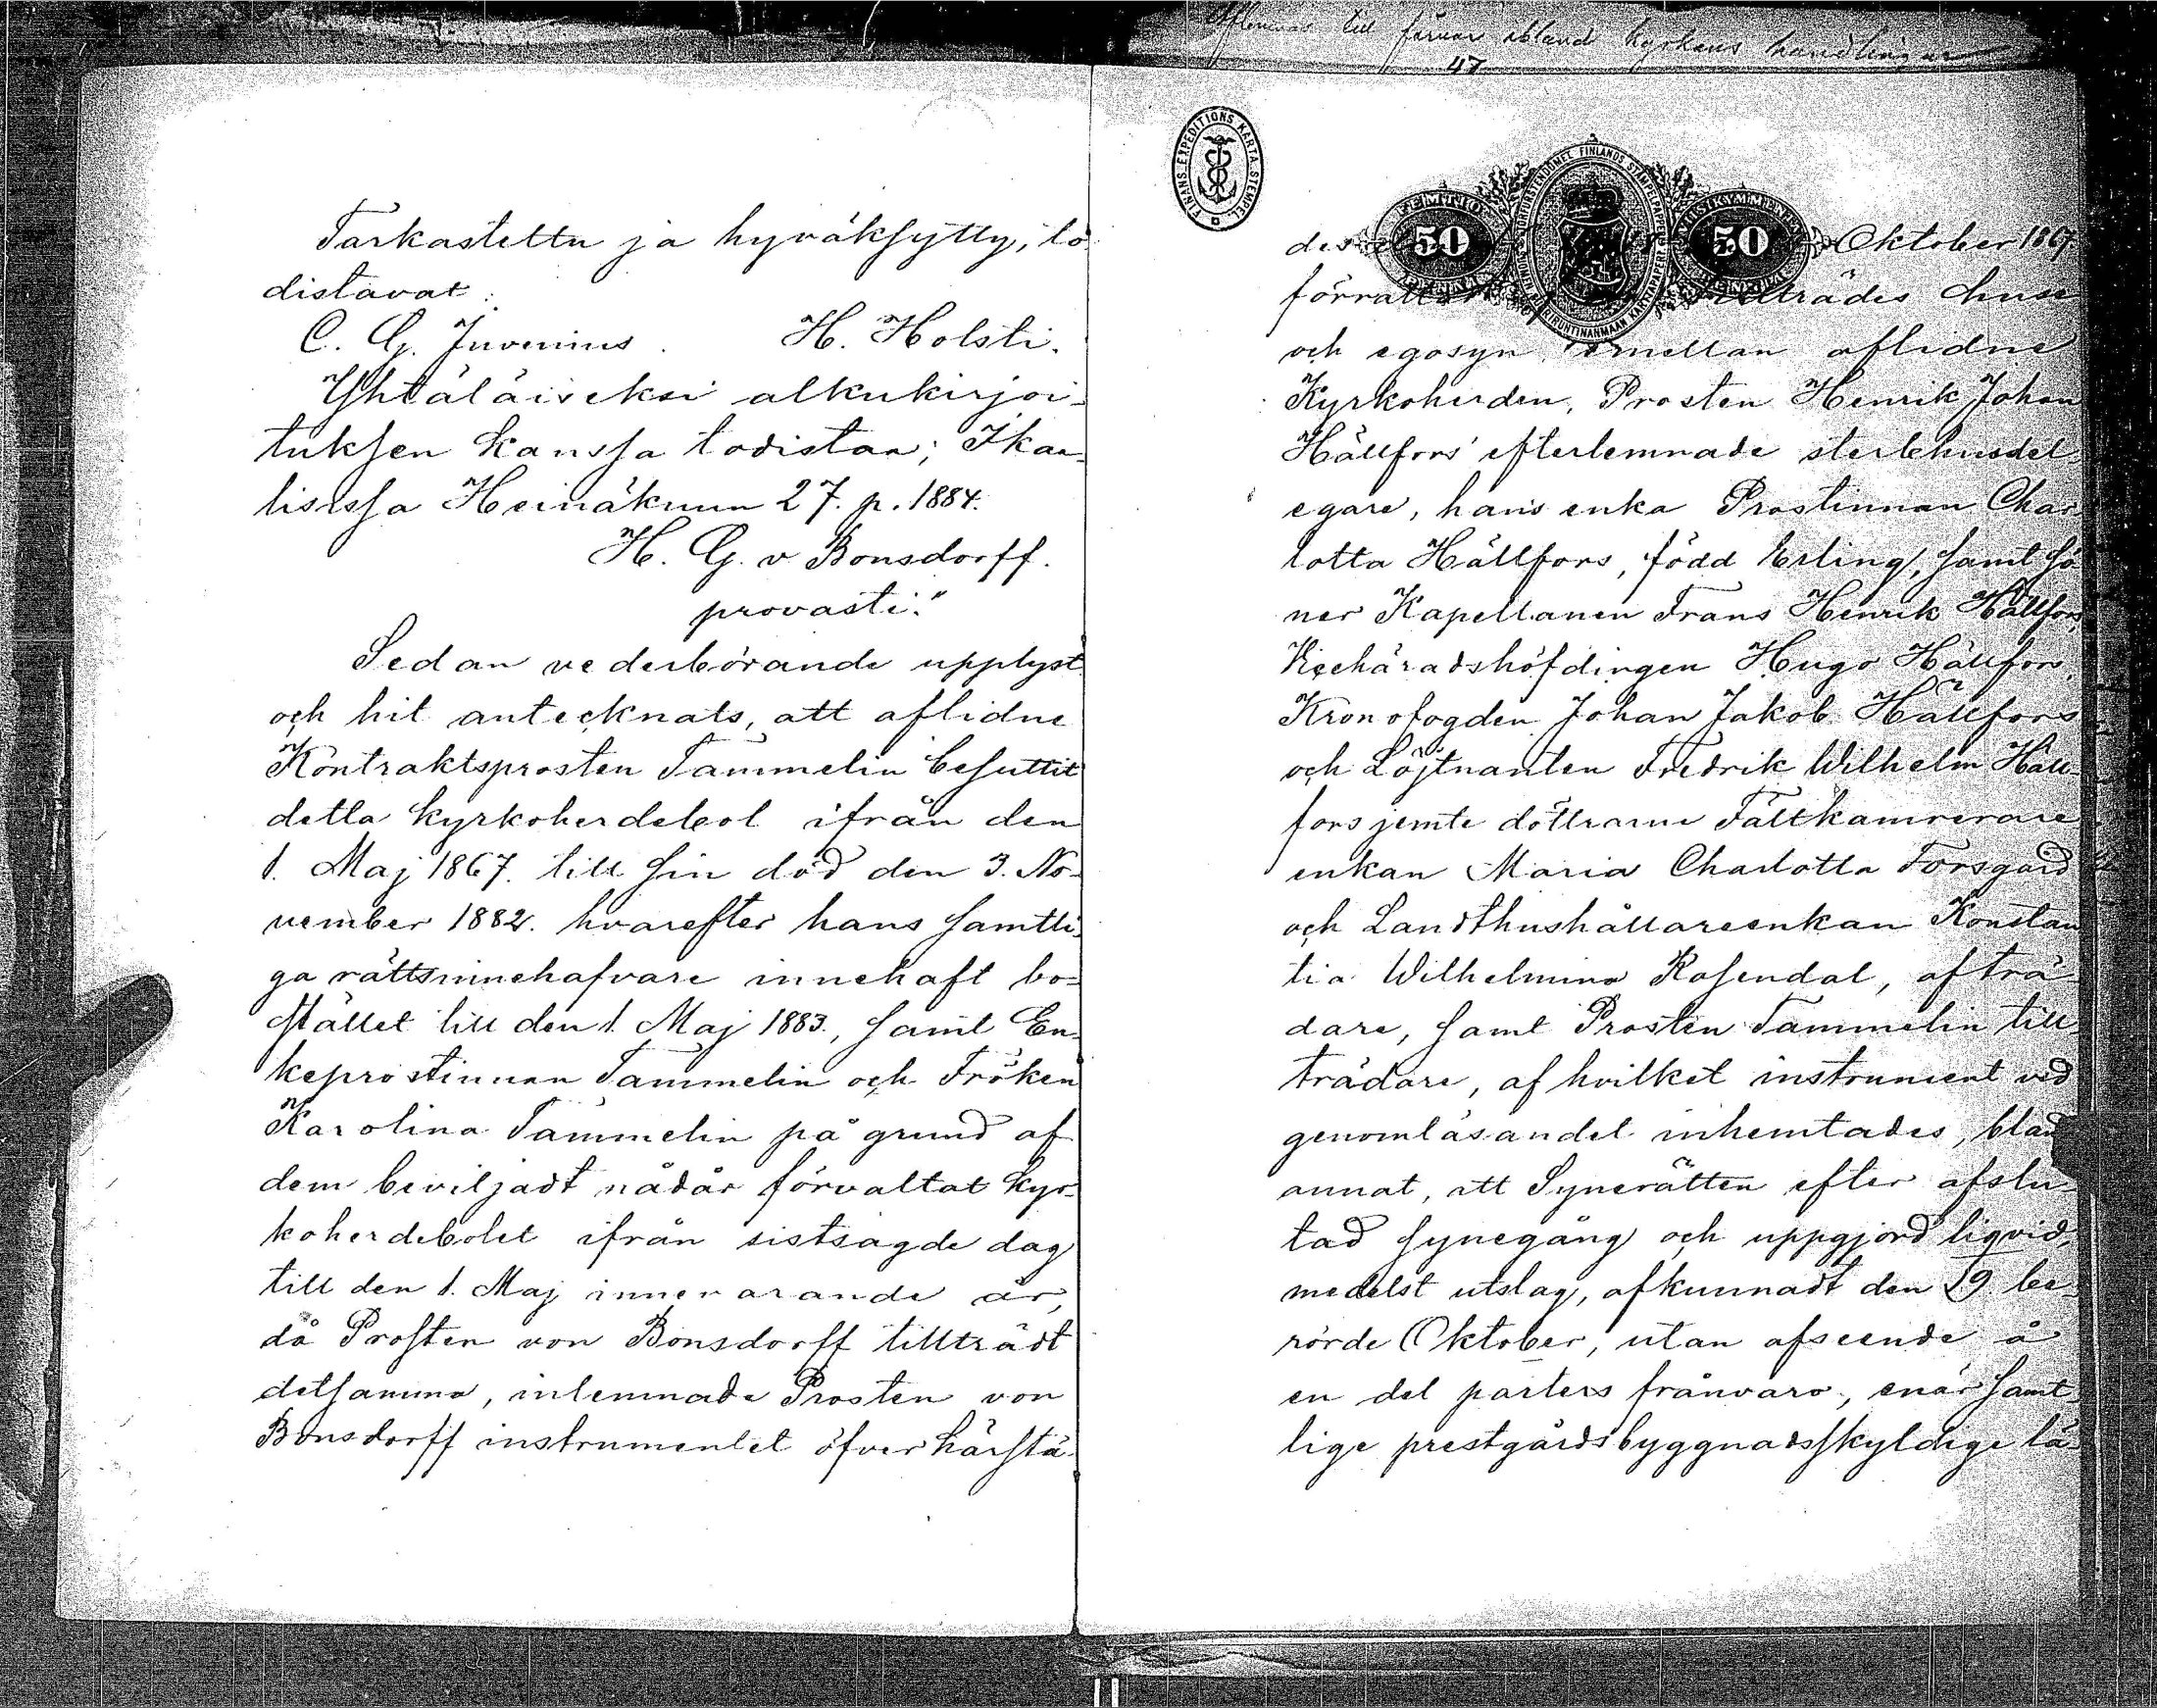 Tarkastettu ja hyväksytty, to
distavat:
C. G. Juvenius. H. Holsti.
Yhtäläiseksi alkukirjoi-
tuksen kanssa todistaa; Ikaa-
lisissa Heinäkuun 27. p. 1884.
H. G. v Bonsdorff.
provasti."
Sedan vederbörande upplyst
och hit antecknats, att aflidne
Kontraktsprosten Tammelin besuttit
detta kyrkoherdebol ifrån den
1. Maj 1867. till sin död den 3. No-
vember 1882. hvarefter hans samtli-
ga rättsinnehafvare innehaft bo-
stället till den 1. Maj 1883., samt En-
keprostinnan Tammelin och Fröken
Karolina Tammelin på grund af
dem beviljadt nådår förvaltat kyr-
koherdebolet ifrån sistsagde dag
till den 1. Maj innevarande år,
då Prosten von Bonsdorff tillträdt
detsamma, inlemnade Prosten von
Bonsdorff instrumentet öfver härstä-
till förvar ibland kyrkans handlingar
47
FINANS EXPEDITIONS KARTA STEMPEL
50 50
des Oktober 1867
förrättad tillträdes huse
och egosyn emellan aflidne
Kyrkoherden, Prosten Henrik Johan
Hällfors' efterlemnade sterbhusdel-
egare, hans enka Prostinnan Char-
lotta Hällfors, född Erling, samt sö-
ner Kapellanen Frans Henrik Hällfors,
Viceháradshöfdingen Hugo Hällfors,
Kronofogden Johan Jakob Hällfors
och Löjtnanten Fredrik Wilhelm Häll-
fors jemte döttrarne Fältkamrerare
enkan Maria Charlotta Forsgård
och Landthushållareenkan Konstan
tia Wilhelmina Rosendal, afträ-
dare, samt Prosten Tammelin till-
trädare, af hvilket instrument vid
genomläsandet inhemtades, bland
annat, att Synerätten efter afslu-
tad synegång och uppgjord liqvid,
medelst utslag, afkunnadt den 19 be-
rörde Oktober, utan afseende å
en del parters frånvaro, enär samt-
lige prestgårdsbyggnadsskyldige lä-